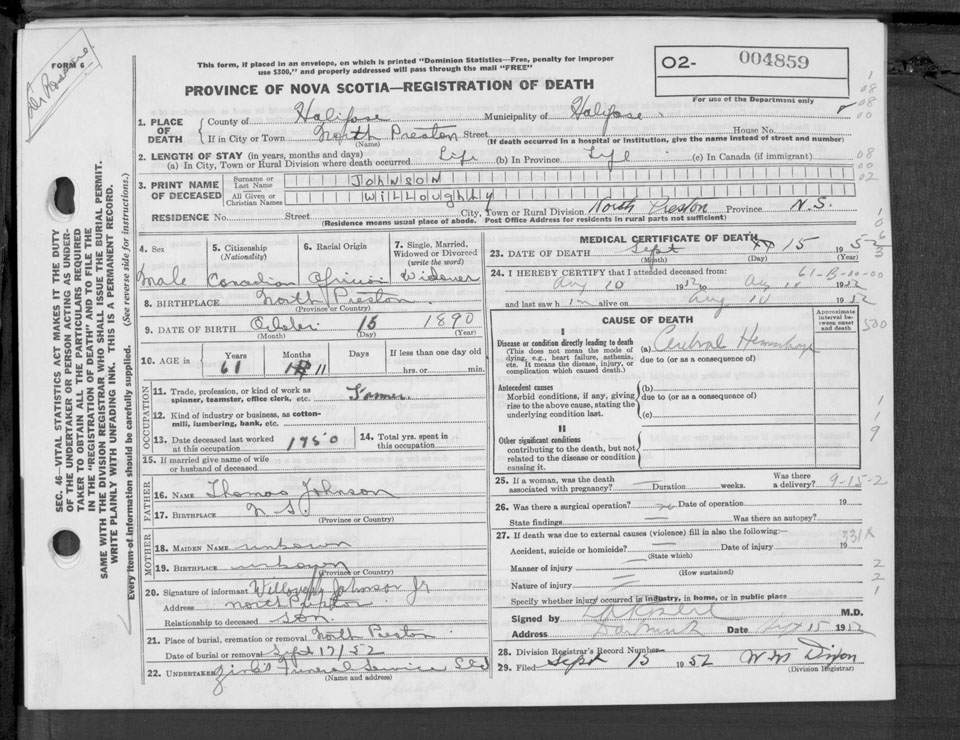 FORM 6
This form, if placed in an envelope, on which is printed "Dominion Statistics—Free, penalty for improper
use $300," and properly addressed will pass through the mail "FREE"
PROVINCE OF NOVA SCOTIA—REGISTRATION OF DEATH
O2- 004859
For use of the Department only
1. PLACE OF DEATH
County of Halifax Municipality of Halifax
If in City or Town North Preston Street House No.
(Name) (If death occurred in a hospital or institution, give the name instead of street and number)
2. LENGTH OF STAY (in years, months and days)
(a) In City, Town or Rural Division where death occurred Life (b) In Province Life (c) In Canada (if immigrant)
3. PRINT NAME OF DECEASED
Surname or Last Name JOHNSON
All Given or Christian Names WILLOUGHLY
RESIDENCE No. Street City, Town or Rural Division North Preston Province N.S.
(Residence means usual place of abode. Post Office Address for residents in rural parts not sufficient)
4. Sex
Male
5. Citizenship
(Nationality)
Canadian
6. Racial Origin
African
7. Single, Married,
Widowed or Divorced
(write the word)
Widower
8. BIRTHPLACE North Preston
(Province or Country)
9. DATE OF BIRTH October 15 1890
(Month) (Day) (Year)
10. AGE in Years Months Days If less than one day old
61 11 hrs. or min.
OCCUPATION
11. Trade, profession, or kind of work as
spinner, teamster, office clerk, etc. Farmer
12. Kind of industry or business, as cotton-
mill, lumbering, bank, etc.
13. Date deceased last worked
at this occupation 1950
14. Total yrs. spent in
this occupation
15. If married give name of wife
or husband of deceased
FATHER
16. NAME Thomas Johnson
17. BIRTHPLACE N.S.
(Province or Country)
MOTHER
18. MAIDEN NAME unknown
19. BIRTHPLACE unknown
(Province or Country)
20. Signature of informant Johnson Jr
Address North Preston
Relationship to deceased Son
21. Place of burial, cremation or removal North Preston
Date of burial or removal Sept 17/52
22. UNDERTAKER Funeral Service Ltd
(Name and address)
MEDICAL CERTIFICATE OF DEATH
23. DATE OF DEATH Sept 15 1952
(Month) (Day) (Year)
24. I HEREBY CERTIFY that I attended deceased from: 61-B-00-00
Aug 10 1952 to Aug 10 1952
and last saw him alive on Aug 10 1952
CAUSE OF DEATH
Approximate interval between onset and death
I
Disease or condition directly leading to death
(This does not mean the mode of
dying, e.g., heart failure, asthenia,
etc. It means the disease, injury, or
complication which caused death.)
(a) Cerebral Hemorrhage
due to (or as a consequence of)
Antecedent causes
Morbid conditions, if any, giving
rise to the above cause, stating the
underlying condition last.
(b)
due to (or as a consequence of)
(c)
II
Other significant conditions
contributing to the death, but not
related to the disease or condition
causing it.
25. If a woman, was the death
associated with pregnancy? Duration weeks. Was there a delivery? 9-15-2
26. Was there a surgical operation? no Date of operation 19
State findings Was there an autopsy?
27. If death was due to external causes (violence) fill in also the following:— 331X
Accident, suicide or homicide? Date of injury 19
(State which)
Manner of injury
(How sustained)
Nature of injury
Specify whether injury occurred in industry, in home, or in public place
Signed by M.D.
Address Dartmouth Date Sept 15 1952
28. Division Registrar's Record Number
29. Filed Sept 15 1952 W M Dixon
(Division Registrar)
SEC. 46—VITAL STATISTICS ACT MAKES IT THE DUTY
OF THE UNDERTAKER OR PERSON ACTING AS UNDER-
TAKER TO OBTAIN ALL THE PARTICULARS REQUIRED
IN THE "REGISTRATION OF DEATH" AND TO FILE THE
SAME WITH THE DIVISION REGISTRAR WHO SHALL ISSUE THE BURIAL PERMIT.
WRITE PLAINLY WITH UNFADING INK. THIS IS A PERMANENT RECORD.
Every item of information should be carefully supplied. (See reverse side for instructions.)